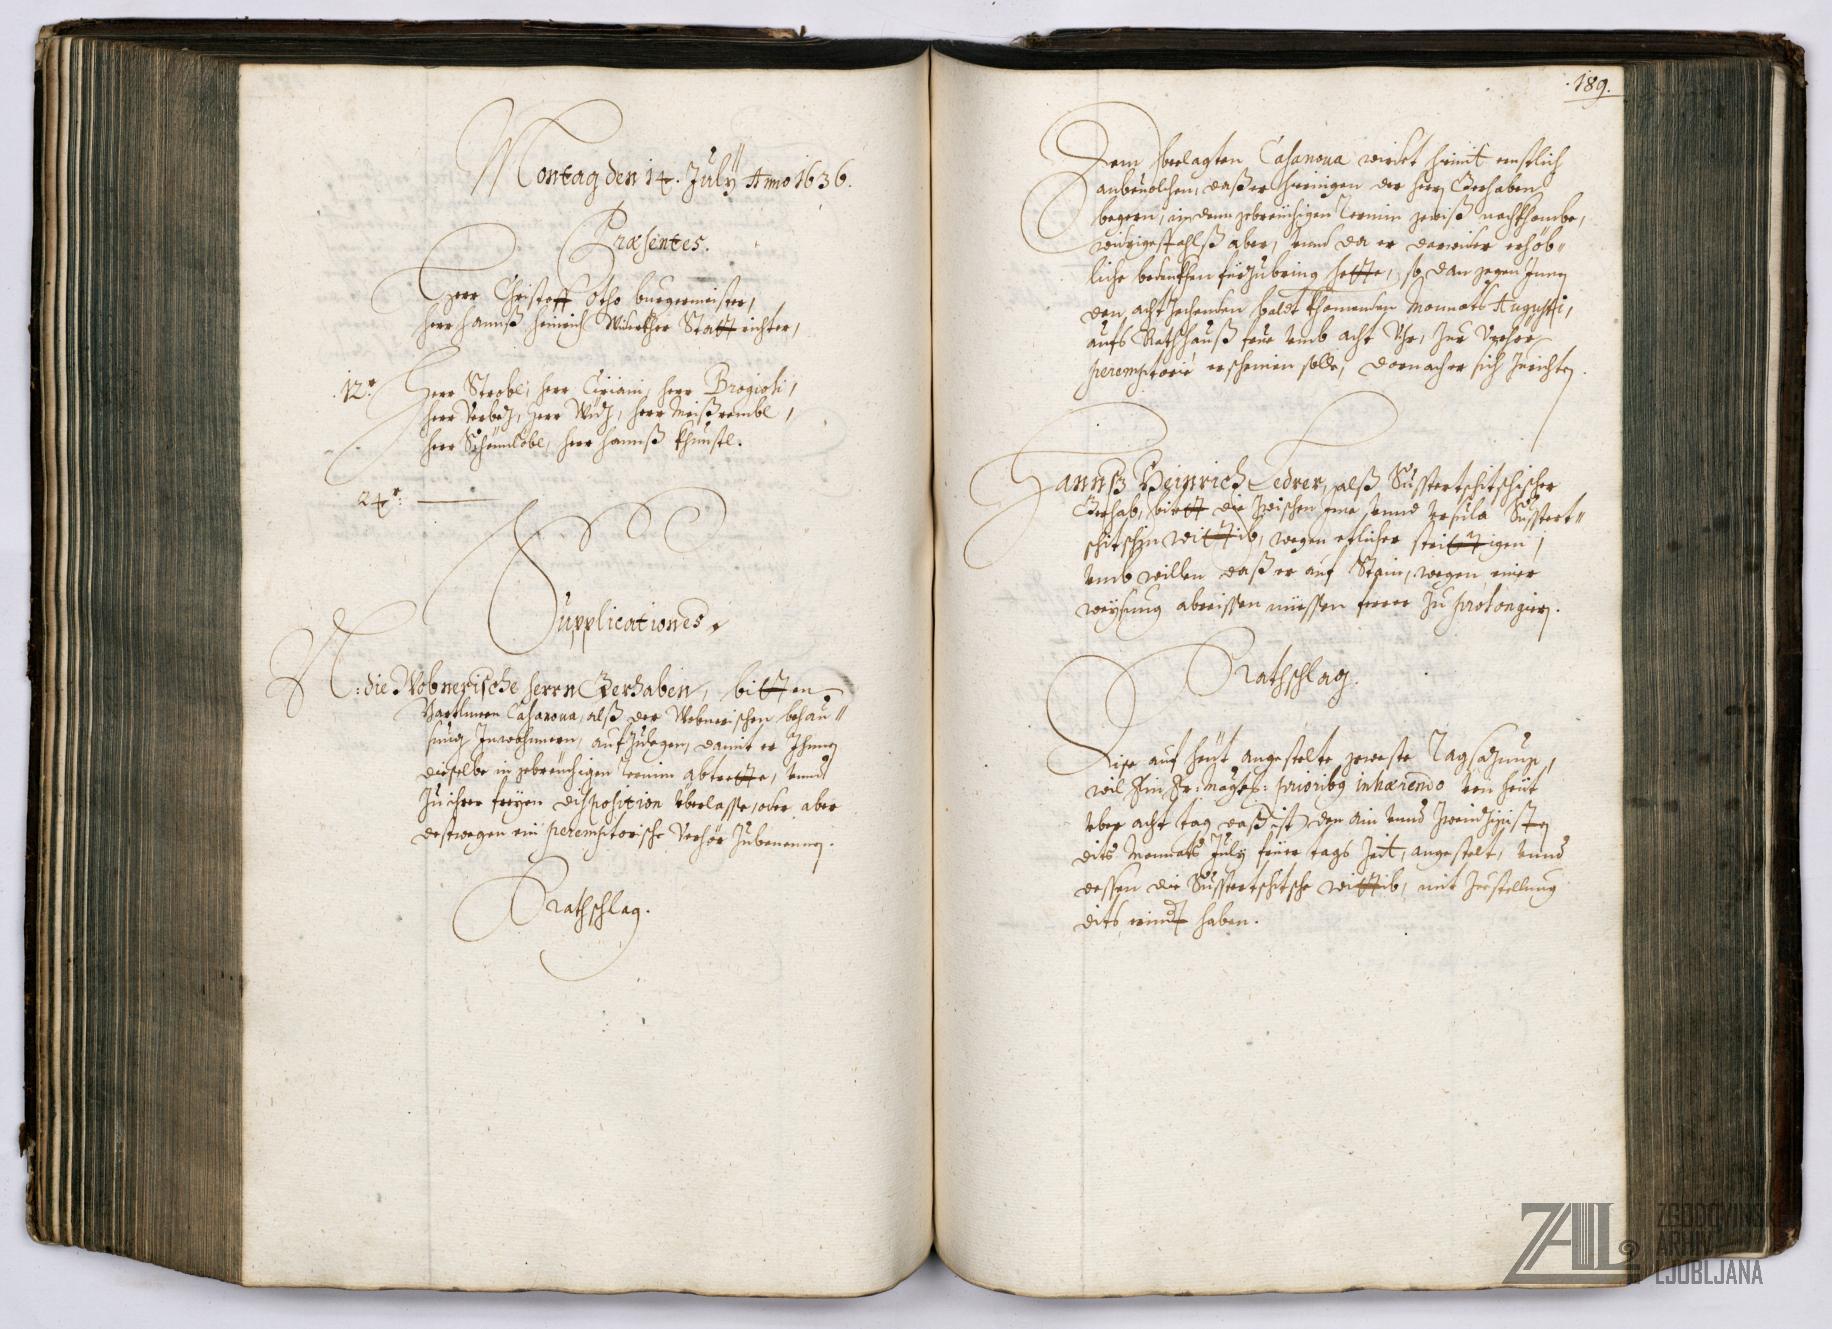 Montag den 14. July Anno 1636.
Præsentes.
Herr Christoff Otho burgermaister,
herr Hannß Heinrich Stattrichter,
12.r Herr Strobl, herr Ciriani, herr Brogioli,
herr Verbez, herr herr
herr Schönnlebl, herr Hannß Khünstl.
24.r:
Supplicationes.
N: die Wobnerische herrn Gerhaben, bitten
Bartlmeen Casanova, alß der Wobnerischen behau"
sung Inwohnern, aufzulegen, damit er Ihnen
dieselbe in gebreüchigen Termin abtrette, vnnd
Zu ihrer freyen disposition Vberlasse, oder aber
destwegen ein peremptorische Verhör Zubenennen.
Rathschlag.
.189.
Dem beclagten Casanova wirdt hiemit ernstlich
anbeuolchen, daß er hieringen der herrn Gerhaben
begern, in dem gebreüchigen Termin gewiß nachkhombe,
widrigesfahlß aber, vnnd da er darwider erhöb"
liche bedenkhen fürzubring hette, so dan gegen Ihnen
den achtzechenden baldt khomenden Monnats Augusti,
aufs Rathhauß frue vmb acht Vhr, Zur Verhör
peremptoriè erscheinen solle, darnach er sich Zurichten.
Hannß Heinrich Ledrer, alß Susstertschitschischer
Gerhab, bitt die Zwischen ime vnnd Vrsula Susstert"
schitschin wittib, wegen etlicher strittigen,
vmb willen daß er auf Stain, wegen einer
weysung abreissen müessen ferrer Zu prolongiern.
Rathschlag.
Dise auf heüt angestelte geweste Tagsazung,
wil Ein Er: Magts: prioribus inhærendo von heüt
vber acht tag daß ist den ain vnnd Zwainzigisten
dits Monnats July früer tags Zeit, angestelt, vnnd
dessen die Susstertschitsche wittib, mit Zuestellung
dits haben.
ZAL
ZGODOVINSKI
ARHIV
LJUBLJANA